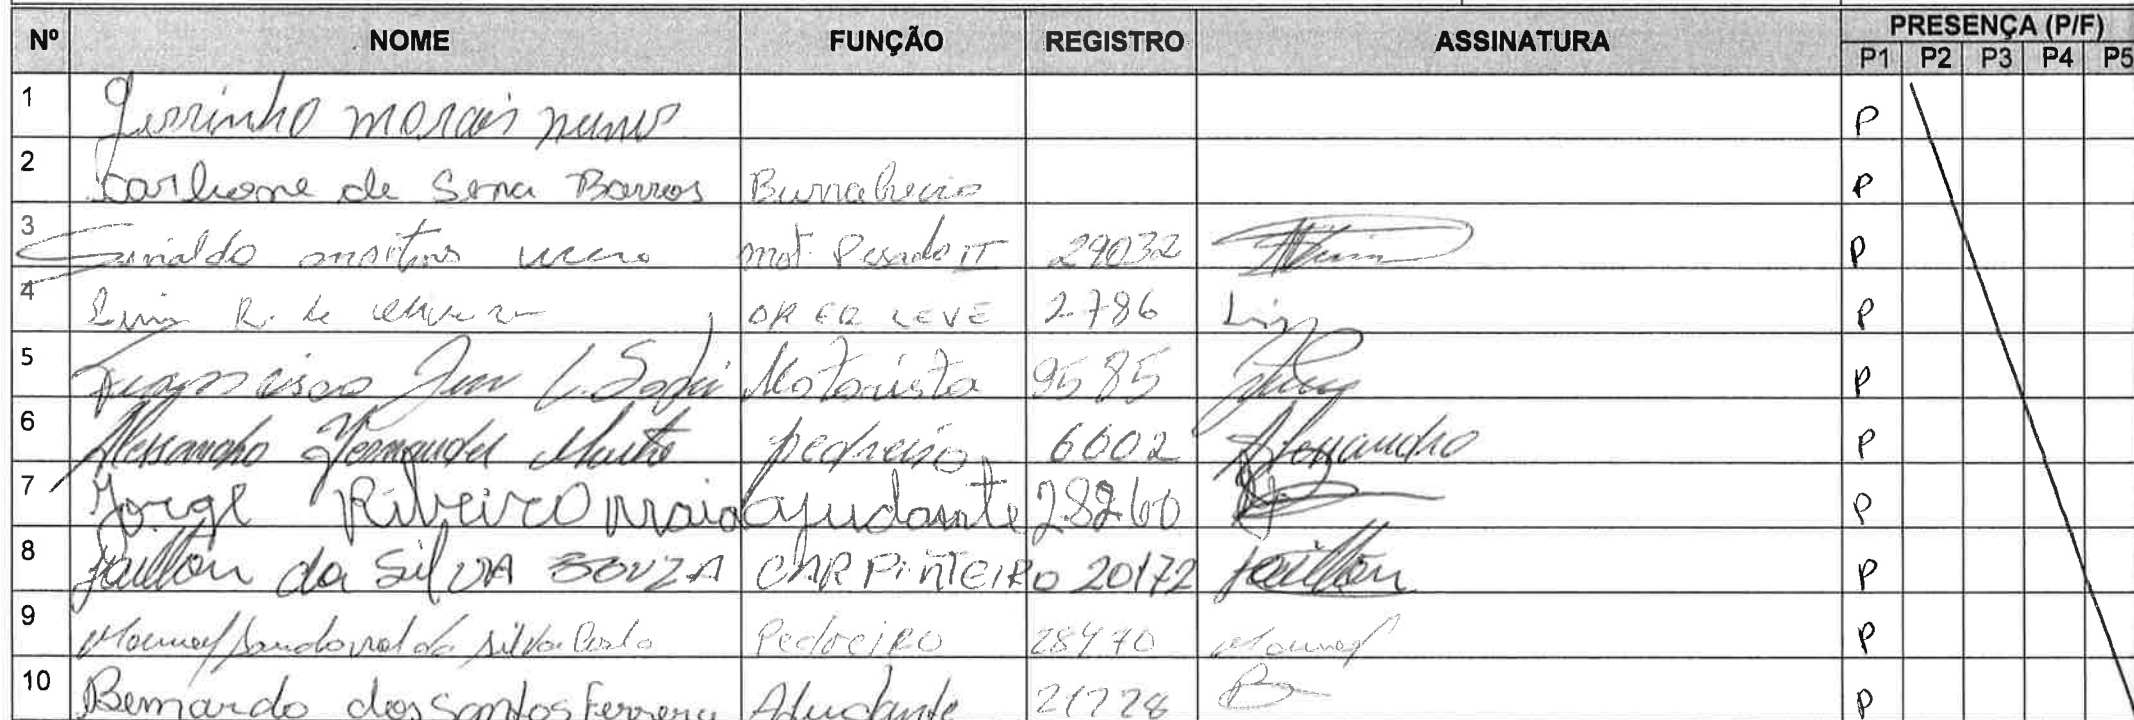 Nº NOME FUNÇÃO REGISTRO ASSINATURA PRESENÇA (P/F)
P1 P2 P3 P4 P5
1 morais P
2 de Sena Barros P
3 mot. Pesado II 29032 P
4 R. de OP EQ LEVE 2786 Luiz P
5 Francisco Motorista 9585 P
6 Alessandro pedreiro 6602 Alessandro P
7 Jorge Ribeiro maia ajudante 28260 P
8 Jailton da Silva SOUZA CARPINTEIRO 20172 Jailton P
9 Manoel Sandoval da Silva Pedreiro 28470 Manoel P
10 Bernardo dos Santos Ferrera Ajudante 21728 P